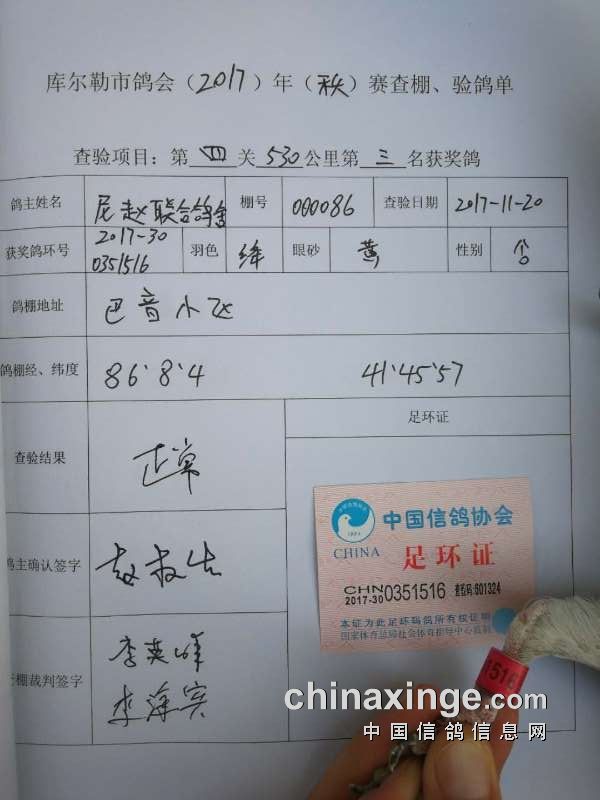 库尔勒市鸽会（2017）年（秋）赛查棚、验鸽单
查验项目：第 四 关 530 公里第 三 名获奖鸽
鸽主姓名 尼赵联合鸽舍 棚号 000086 查验日期 2017-11-20
获奖鸽环号 2017-30 0351516 羽色 绛 眼砂 黄 性别
鸽棚地址 巴音小区
鸽棚经、纬度 86°8′4 41′45′57
足环证
查验结果 正常
中国信鸽协会
CHINA
足环证
CHN
2017-30 0351516 查验码:601324
本证为此足环码鸽所有权证明
国家体育总局社会体育指导中心监制
鸽主确认签字
棚裁判签字 李英峰
1516
chinaxinge.com
中国信鸽信息网